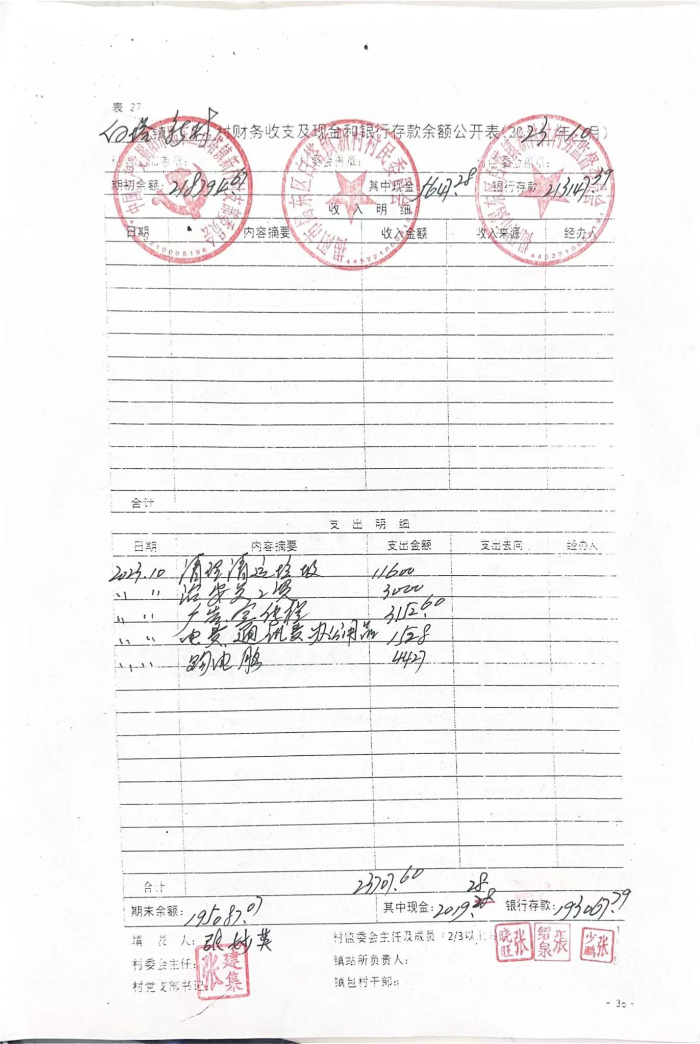 表 27
白塔镇新村村财务收支及现金和银行存款余额公开表(2023年10月)
期初余额:218794.67 其中现金:5647.28 银行存款:213147.39
收 入 明 细
日期 内容摘要 收入金额 收入来源 经办人
合计
支 出 明 细
日期 内容摘要 支出金额 支出去向 经办人
2023.10 清理清运垃圾 11600
〃 〃 治安员工资 3000
〃 〃 广告宣传栏 3152.60
〃 〃 电费通讯费办公用品 1528
〃 〃 购电脑 4427
合计 23707.60
期末余额:195087.07 其中现金:2019.28 银行存款:193067.79
28
填 表 人:张树英 村监委会主任及成员(2/3以上
村委会主任: 镇站所负责人:
村党支部书记: 镇包村干部:
张建集
张晓旺
张绍泉
张少鹏
- 30 -